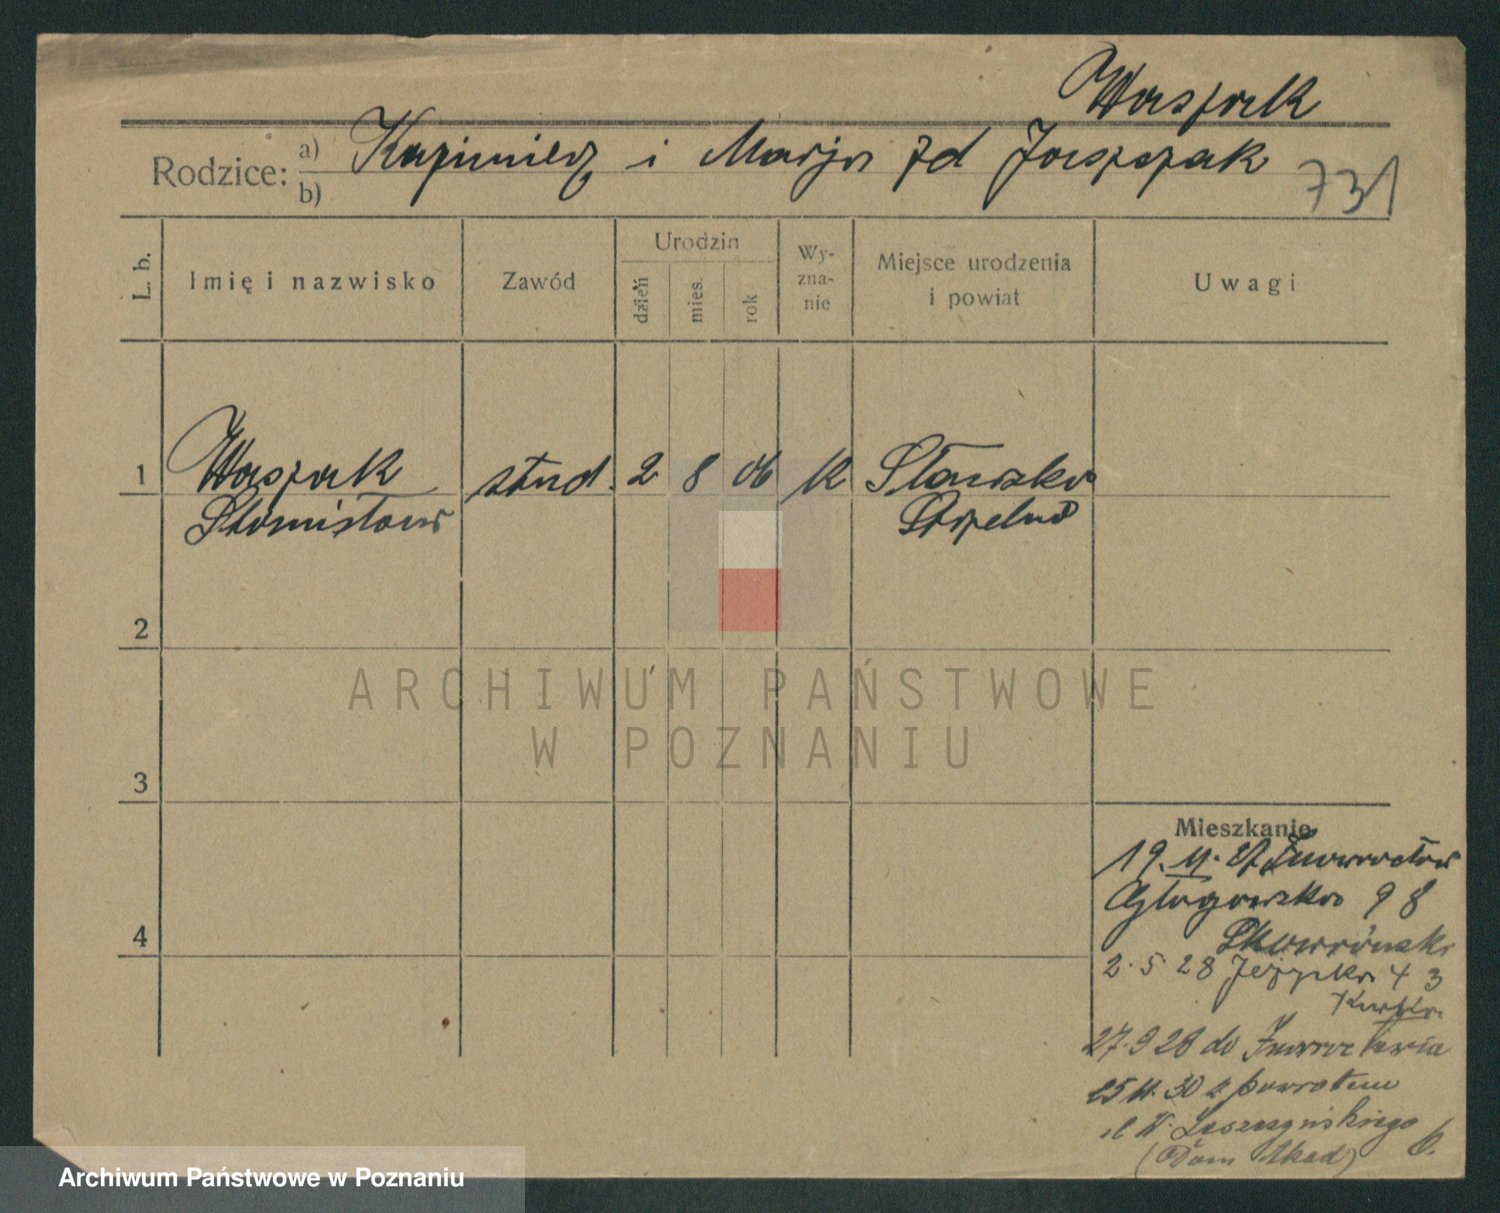 Wasjak
Rodzice: a) Kazimierz i Marja zd Jaszczak
b)
731
L. b.
Imię i nazwisko
Zawód
Urodzin
dzień
mies.
rok
Wy-
zna-
nie
Miejsce urodzenia
i powiat
Uwagi
1 Wasjak stud. 2 8 06 k Sławsko
Stanisław Strzelno
2
ARCHIWUM PAŃSTWOWE
W POZNANIU
3
4
Mieszkanie
19. 11. 27 Inowrocław
Głogowska 98
Skowroński
2. 5 28 Jeżycka 43
27. 9 28 do Inowrocławia
25 11. 30 z powrotem
ul W. Leszczyńskiego 6.
(Dom Akad)
Archiwum Państwowe w Poznaniu